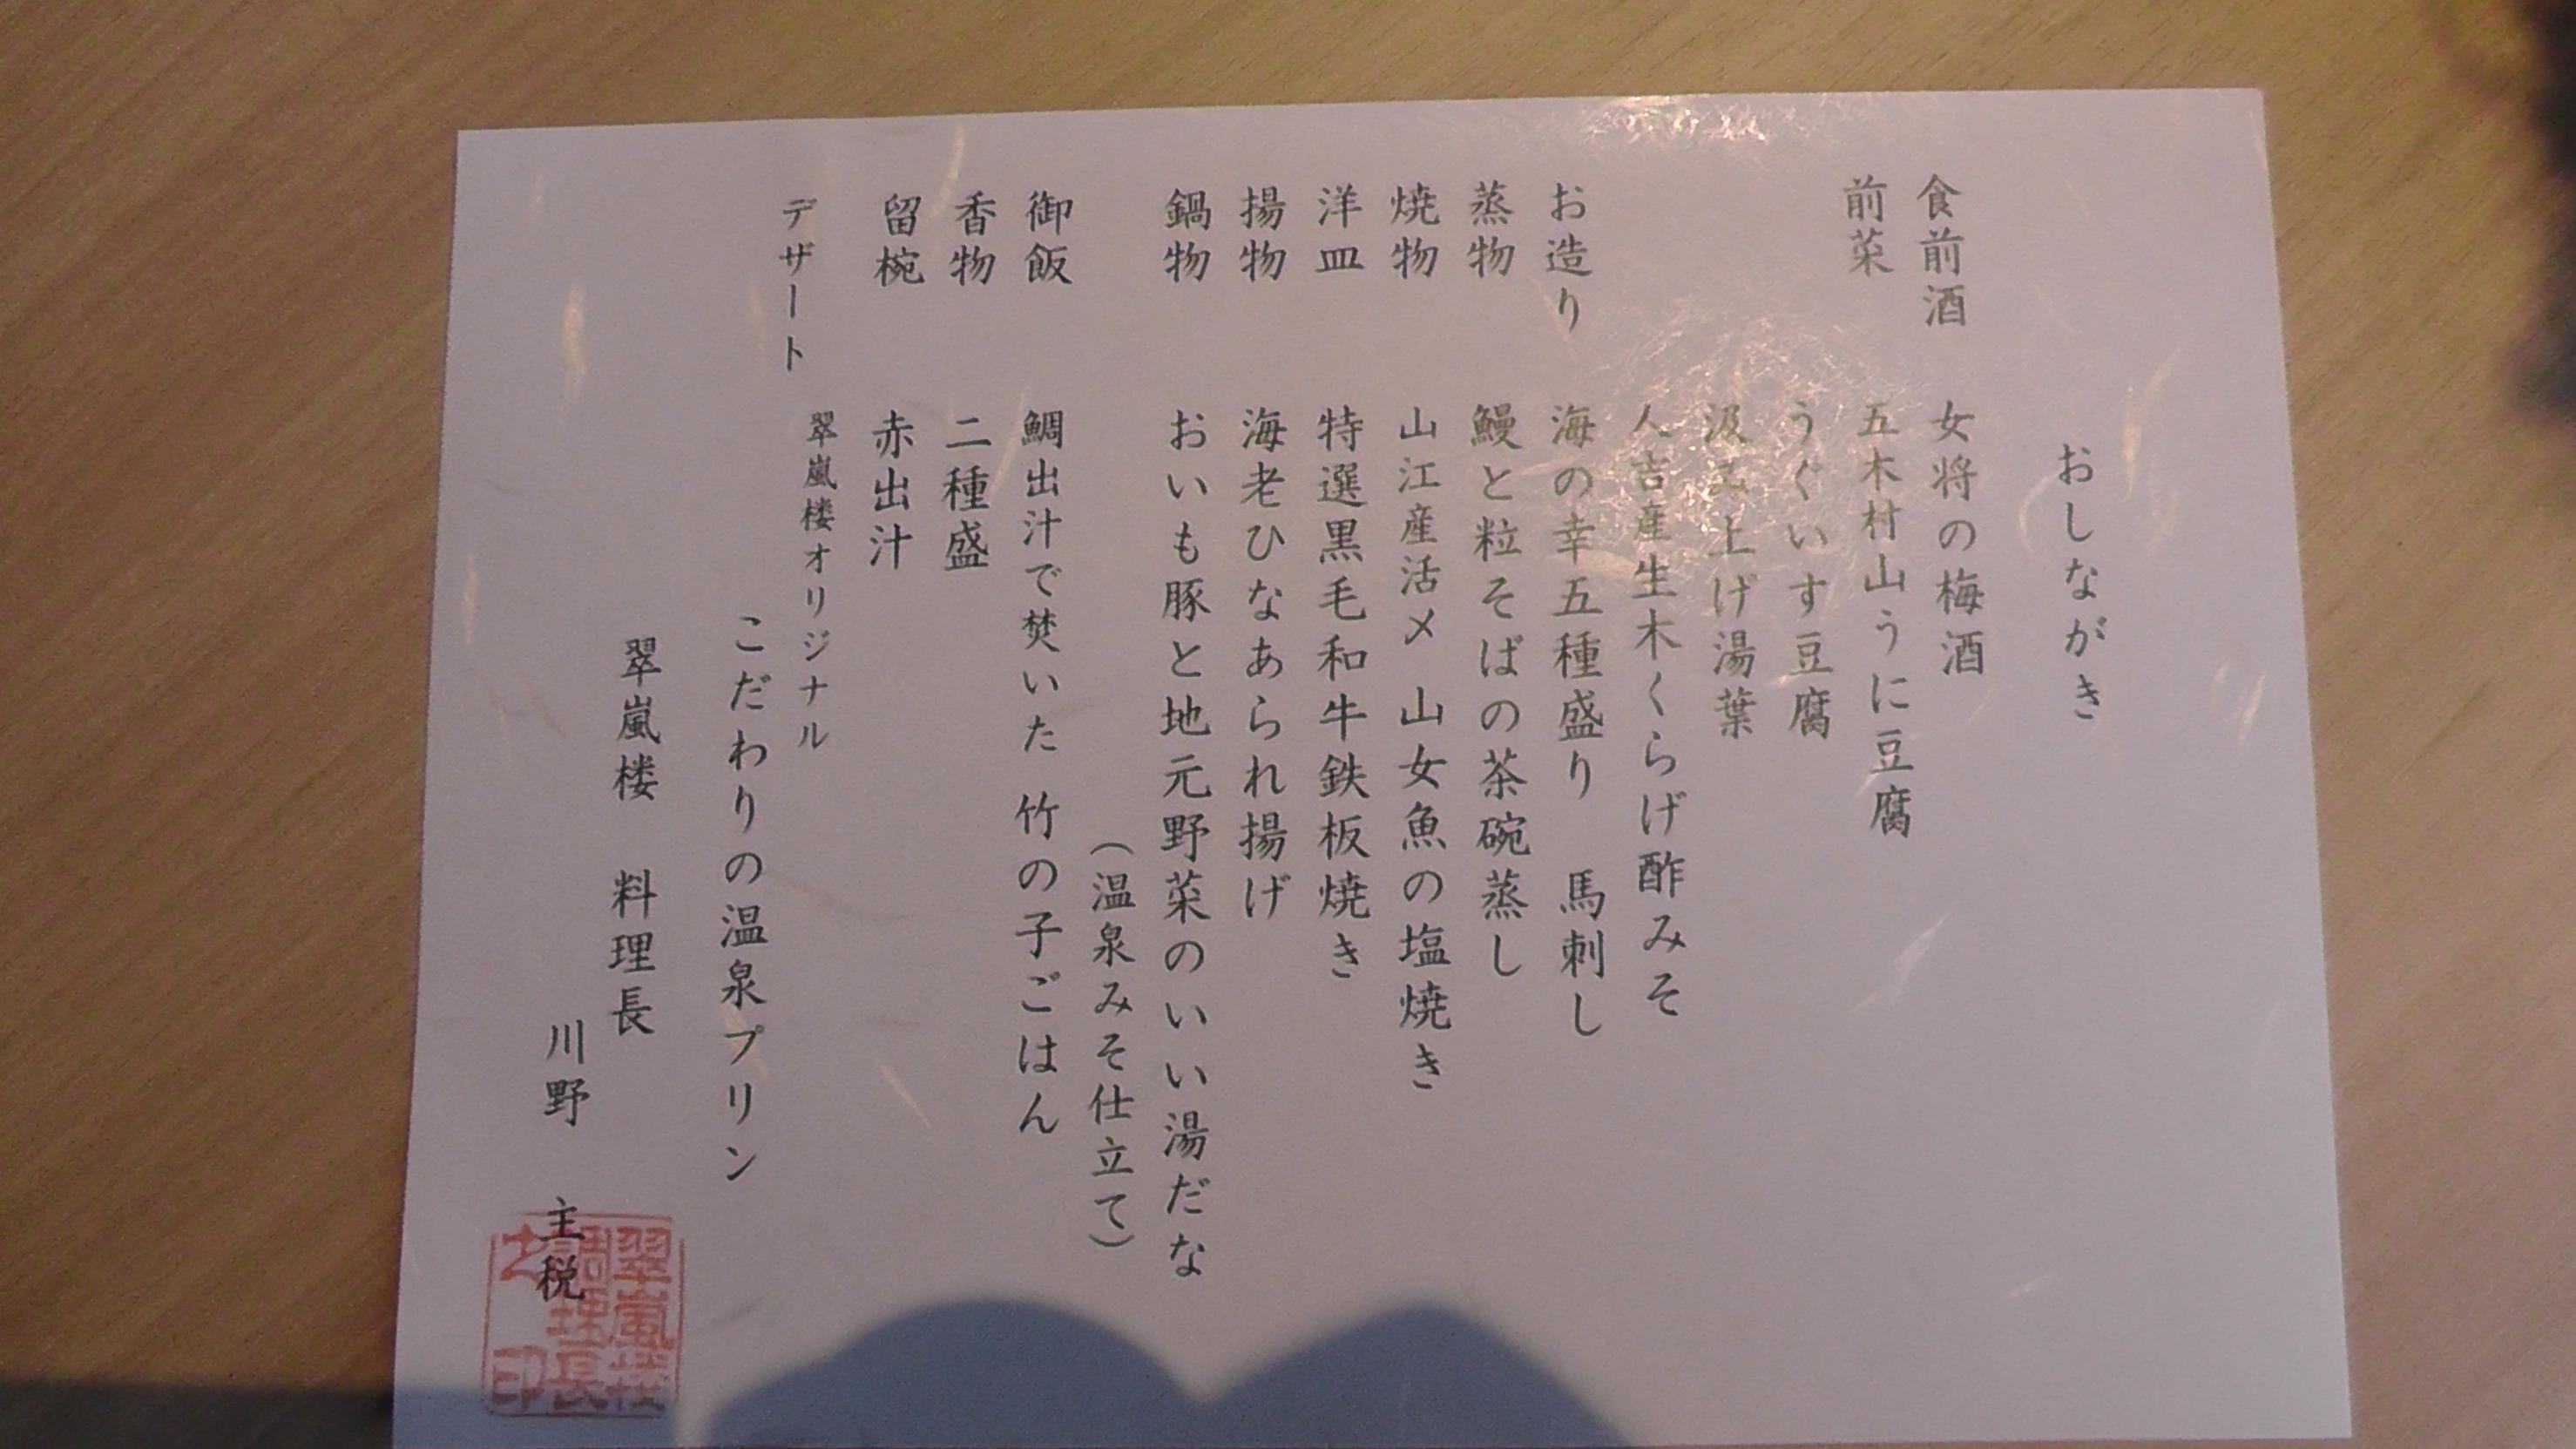 おしながき
食前酒 女将の梅酒
前菜 五木村山うに豆腐
うぐいす豆腐
汲み上げ湯葉
人吉産生木くらげ酢みそ
お造り 海の幸五種盛り 馬刺し
蒸物 鰻と粒そばの茶碗蒸し
焼物 山江産活〆 山女魚の塩焼き
洋皿 特選黒毛和牛鉄板焼き
揚物 海老ひなあられ揚げ
鍋物 おいも豚と地元野菜のいい湯だな
（温泉みそ仕立て）
御飯 鯛出汁で焚いた 竹の子ごはん
香物 二種盛
留椀 赤出汁
デザート 翠嵐楼オリジナル
こだわりの温泉プリン
翠嵐楼 料理長
川野 主税
翠嵐楼
調理長
之印